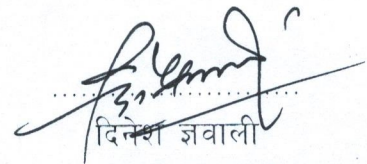 दिनेश ज्ञवाली